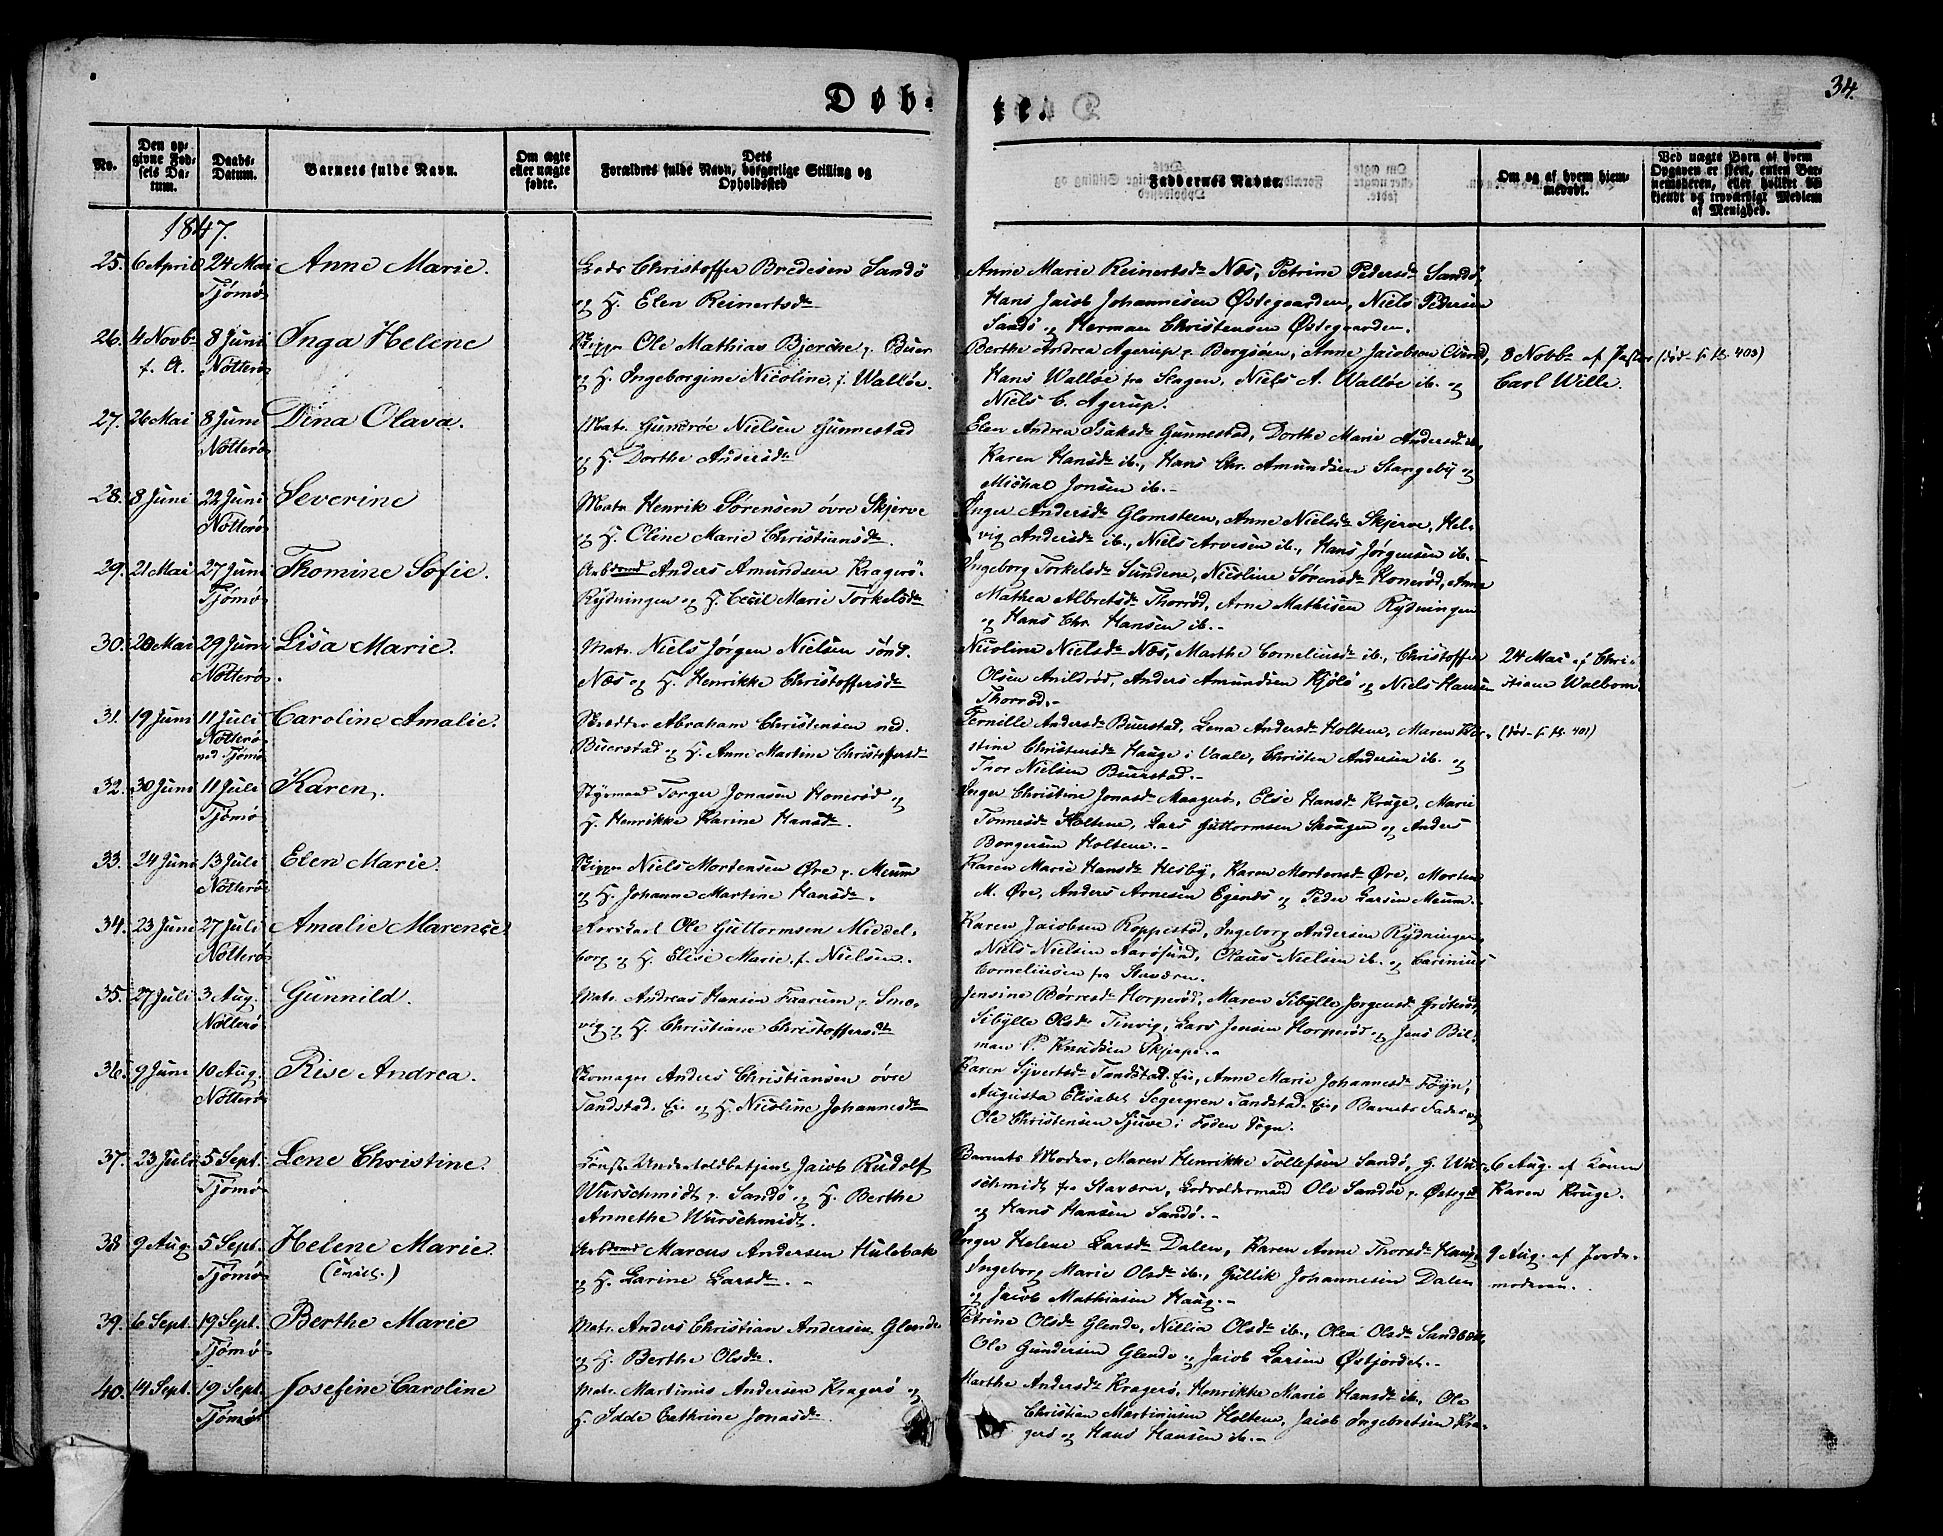 Døb-
te.
34.
No.
Den op-
givne Fød-
sels Da-
tum.
Daabs-
Datum.
Barnets fulde Navn.
Om ægte
eller uægte
fødte.
Dets
Forældres fulde Navn, borgerlige Stilling og
Opholdssted
Faddernes Navne.
Om og af hvem hjem-
medøbt.
Ved uægte Børn af hvem
Opgaven er skeet, enten Bar-
nemoderen, eller hvilket be-
kjendt og troværdigt Medlem
af Menighed.
1847.
25. 6 April 24 Mai Anne Marie. Lods Christoffer Bredesen Sandö
Tjømø og H. Elen Reinertsdr
Anne Marie Reinertsdr Næs, Petrine Pedersdr Sandö,
Hans Jacob Johannesen Østegaarden, Niels Pedersen
Sandö og Herman Christensen Østegaarden.
26. 4 Novbr 8 Juni Inga Helene Skippr Ole Mathias Bjercke p. Buer
f. A. Nötterø og H. Ingeborgine Nicoline f. Walløe.
Berthe Andrea Agerup p. Bergsöen, Anne Jacobsen
Hans Walløe fra Slagen, Niels A. Walløe ib. og
Niels C. Agerup.
8 Novbr af Pastor
Carl Wille.
(död - fr. 403)
27. 26 Mai 8 Juni Dina Olava. Matr. Gunerøe Nielsen Gunnestad
Nötterø og H. Dorthe Andersdr
Elen Andrea Isaksdr Gunnestad, Dorthe Marie Andersdr ib.,
Karen Hansdr ib., Hans Chr. Amundsen Stangeby og
Michal Jonsen ib.-
28. 8 Juni 22 Juni Severine Matr Henrik Sørensen övre Skjerve
Nötterø og H. Oline Marie Christiansdr.
Inger Andersdr Glomsteen, Anne Nielsdr Skjerve, Hel-
vig Andersdr ib., Niels Arvesen ib., Hans Jørgensen ib.-
29. 21 Mai 27 Juni Thomine Sofie. Arbdsmd Anders Amundsen Kragerö-
Tjømø Rydningen og H. Cecil Marie Torkelsdr
Ingeborg Torkelsdr Sundene, Nicoline Sørensdr Honerød, Anne
Mathea Albretsdr Thorrød, Arne Mathisen Rydningen
og Hans Chr. Hansen ib.-
30. 20 Mai 29 Juni Lisa Marie. Matr. Niels Jørgen Nielsen sönd.
Nötterø Næs og H. Henrikke Christoffersdr
Nicoline Nielsdr Næs, Marthe Corneliusdr ib., Christoffer
Olsen Anildrød, Anders Amundsen Kjölö og Niels Hansen
Thorrød.-
24 Mai af Chri-
stiane Walbom
31. 19 Juni 11 Juli Caroline Amalie. Skrædder Abraham Christensen ned.
Nötterø Buerstad og H. Anne Martine Christoffersdr
ved Tjømø
Pernille Andersdr Buerstad, Lena Andersdr Holtene, Maren Kir-
stine Christensdr Hauge i Vaale, Christen Andersen ib. og
Thor Nielsen Buerstad.-
(död - fr. 401)
32. 30 Juni 11 Juli Karen. Styrmand Torger Jonasen Honerød og
Tjømø H. Henrikke Karine Hansdr.
Inger Christine Jonasdr Maagerö, Else Hansdr Kruge, Marie
Tønnesdr Holtene, Lars Guttormsen Skougen og Anders
Borgersen Holtene.-
33. 24 Juni 13 Juli Elen Marie. Skippr Niels Mortensen Øre p. Meum
Nötterø og H. Johanne Martine Hansdr.
Karen Marie Hansdr Hesby, Karen Mortensdr Øre, Morten
M. Øre, Anders Arnesen Egenes og Peder Larsen Meum.-
34. 23 Juni 27 Juli Amalie Marense. Korskarl Ole Guttormsen Middel-
Nötterø borg og H. Elise Marie f. Nielsen.
Karen Jacobsen Roppestad, Ingeborg Andersen Rydningen,
Niels Nielsen Aarøsund, Olaus Nielsen ib. og Carinius
Corneliusen fra Staværn.
35. 27 Juli 3 Aug. Gunnild. Matr. Andreas Hansen Fixarum p. Smo-
Nötterø vig og H. Christiane Christoffersdr
Jensine Børresdr Horperød, Maren Sibylle Jorgensdr Gröterød,
Sibylle Olsdr Tinvig, Lars Jensen Horperød og Jens Bil-
man P. Knudsen Skjerpe.-
36. 9 Juni 10 Aug. Rise Andrea. Skomager Anders Christiansen övre
Nötterø Tandstad. Eie og H. Nicoline Johannesdr
Karen Syvertsdr Tandstad. Eie, Anne Marie Johannesdr Föyn,
Augusta Elisabet Segergren Tandstad. Eie, Barnets Fader og
Ole Christensen Tjuve i Foden Sogn.
37. 23 Juli 5 Sept. Lene Christine. Const. Undertoldbetjent Jacob Rudolf
Tjømø Wurschmidt p. Sandö og H. Berthe
Annethe Wurschmidt.
Barnets Moder, Maren Henrikke Tollefsen Sandö, G. Wur-
schmidt fra Staværn, Lodsoldermand Ole Sandöe p. Østegd
og Hans Hansen Sandö.-
6 Aug. af Konen
Karen Kruge.
38 9 Aug. 5 Sept. Helene Marie Arbdsmd Marcus Andersen Hulebak
Tjømø og H. Larine Larsdr.-
Inger Helene Larsdr Dalen, Karen Anne Thorsdr Haug,
Ingeborg Marie Olsdr ib., Gullik Johannesen Dalen
og Jacob Mathiasen Haug.-
9 Aug. af Jorde-
moderen.
39. 6 Sept. 19 Sept. Berthe Marie Matr. Anders Christian Andersen Glende
Tjømø og H. Berthe Olsdr.
Petrine Olsdr Glende, Nillia Olsdr ib., Olea Olsdr Sandbæk,
Ole Gundersen Glende og Jacob Larsen Østjordet.-
40. 14 Sept. 19 Sept. Josefine Caroline Matr. Martinus Andersen Kragerö og
Tjømø H. Idde Cathrine Jonasdr
Marthe Andersdr Kragerö, Henrikke Marie Hansdr ib., Ole
Christian Martinusen Holtene, Jacob Ingebretsen Kra-
gerö og Hans Hansen ib.-